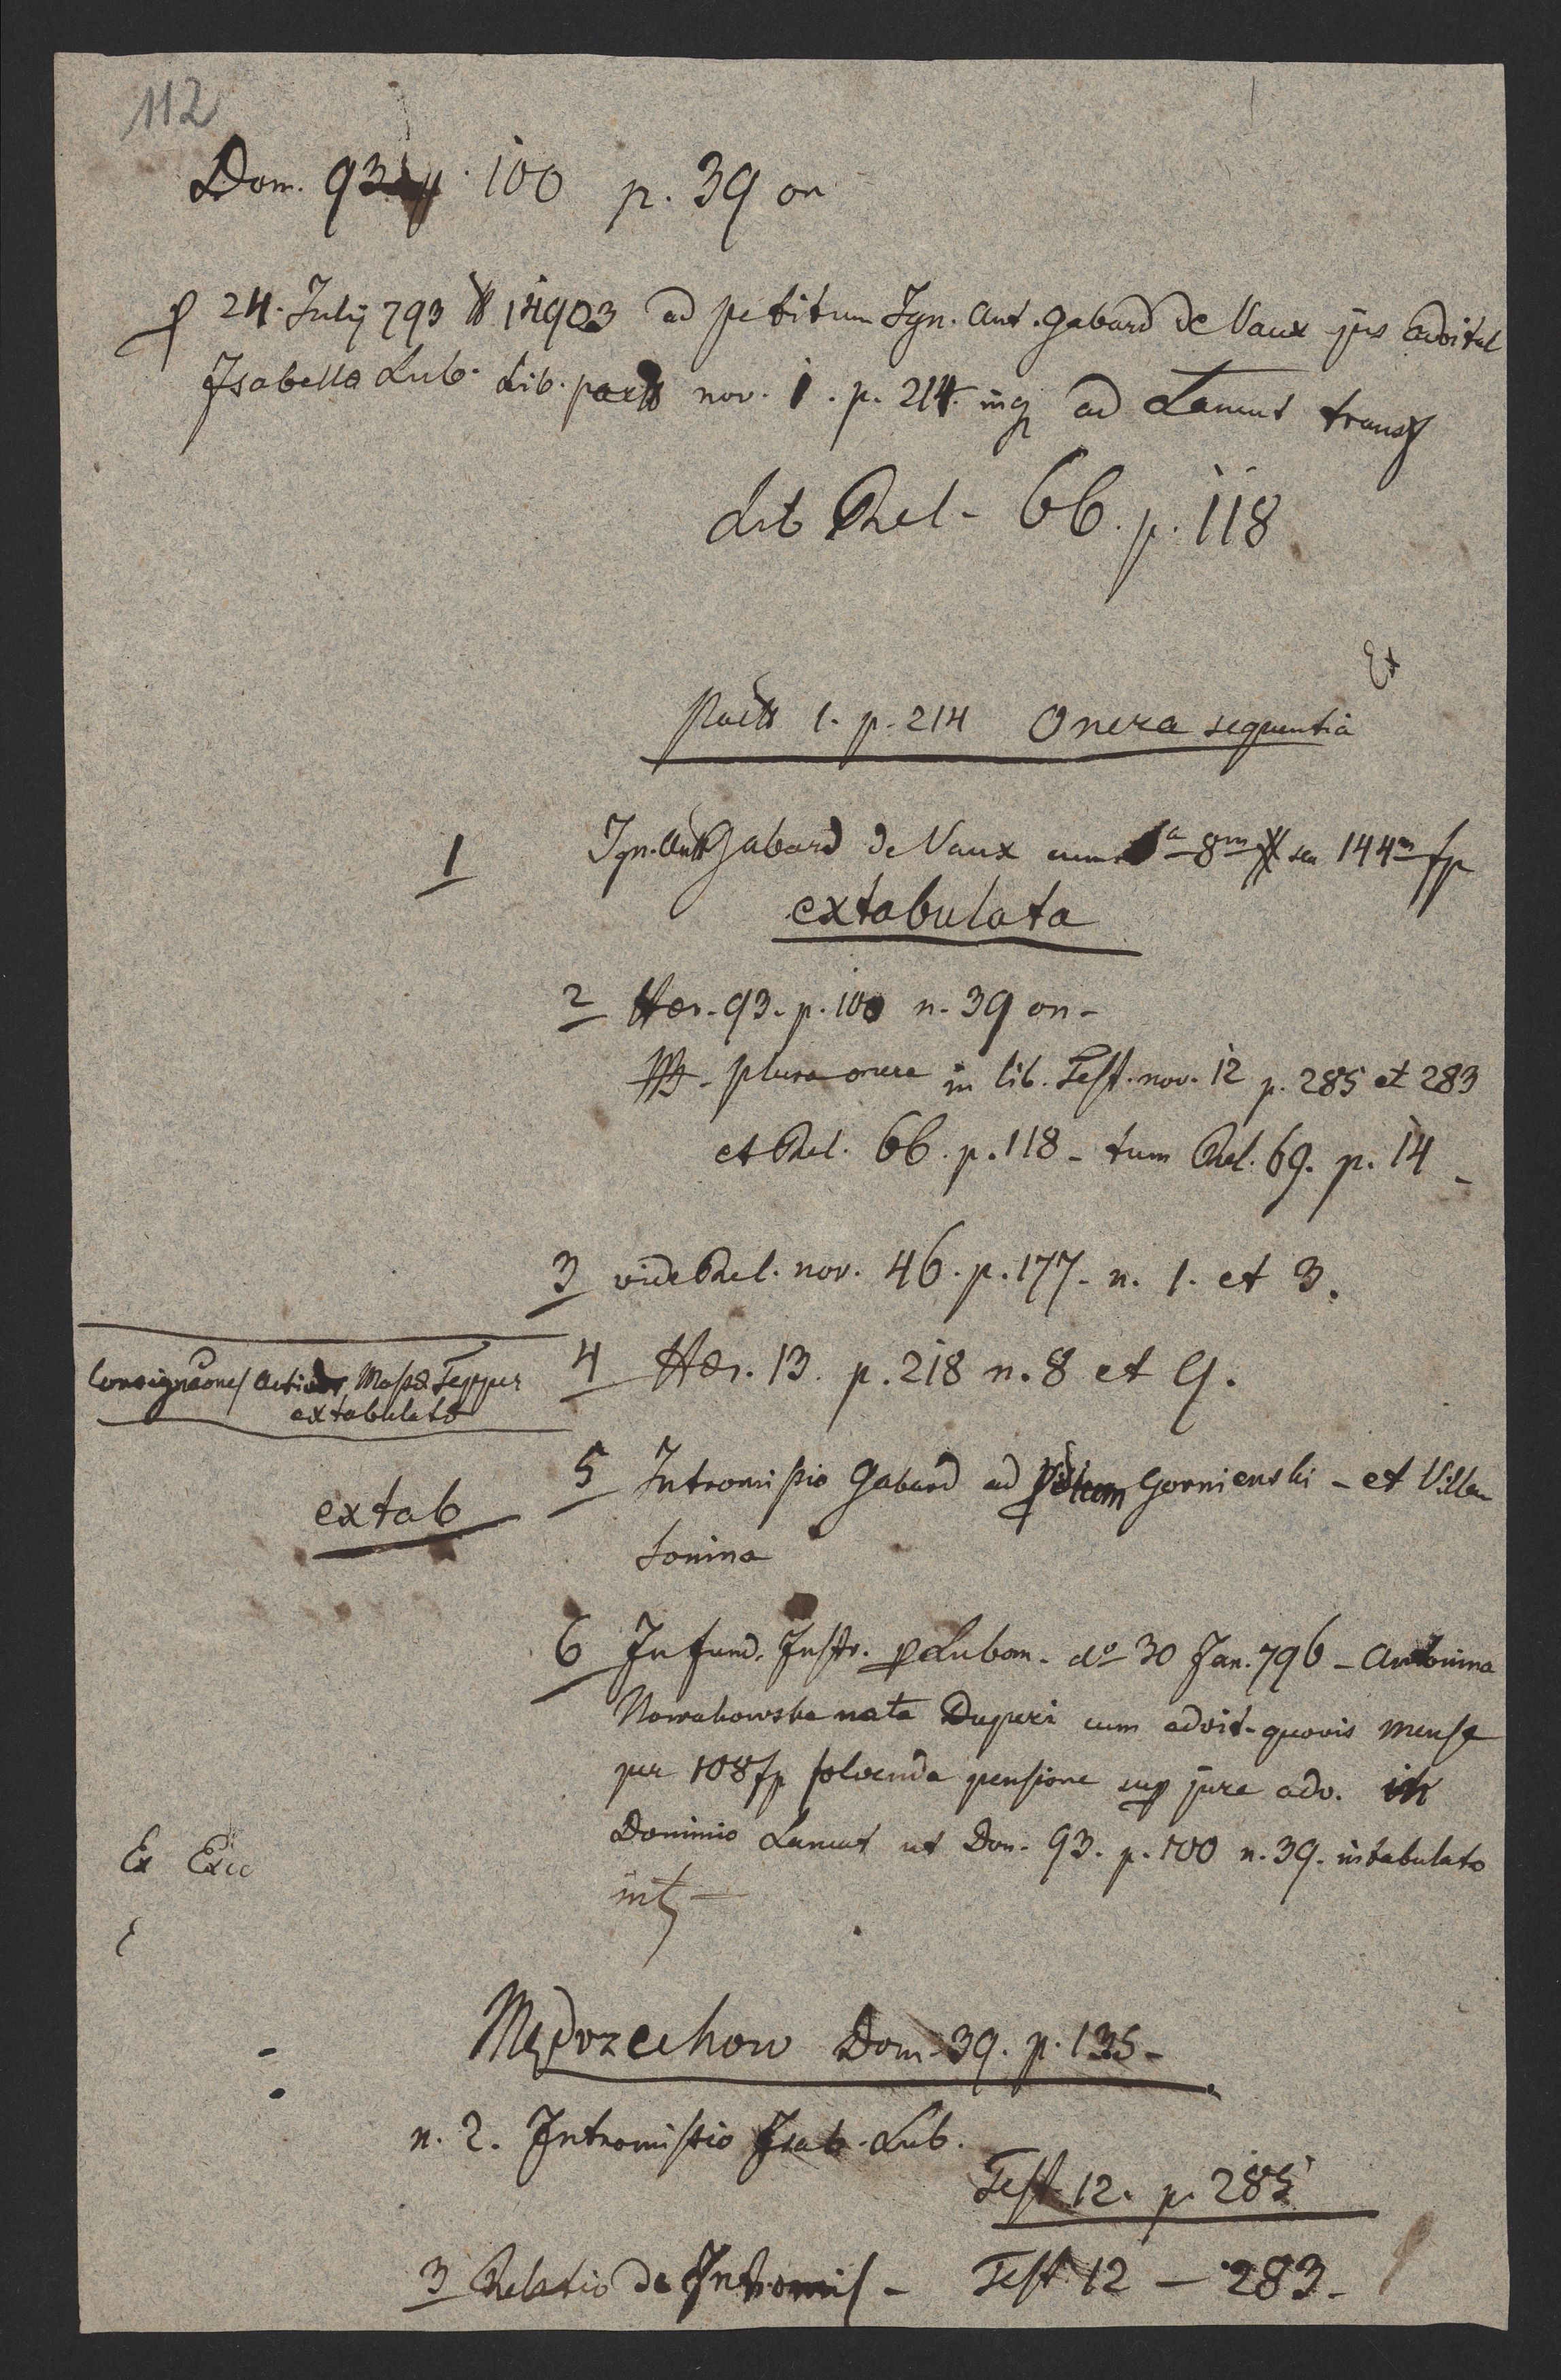 112
Dom. 93 100 p. 39 on
24. July 793 14903 ad petitum Ign. Ant. Gabard de Vaux jus advital
Isabella Lub. Lib. nov. 1. p. 214. ad Lancut transf
Lib Rel - 66. p. 118
Ex
1. p. 214 Onera sequentia
1 Ign. Ant Gabard de Vaux cum 8m seu 144m fp
extabulata
2 Her. 93. p. 100 n. 39 on -
plura onera in lib. Test. nov. 12 p. 285 et 283
et Rel. 66. p. 118 - tum Rel. 69. p. 14 -
3 vide Rel. nov. 46. p. 177 - n. 1. et 3.
4 Her. 13. p. 218 n. 8 et 9.
Massæ Tepper
extabulata
5 Intromissio Gabard ad Gornienski - et Villam
extab
tonina
6 In fund. Instr. p Lubom. do 30 Jan. 796 - Antonina
Nowakowska nata Duperi cum advit. quovis mense
per 108 fp solvenda pensione sup jure adv. in
Dominio Lancut ut Dom. 93. p. 100 n. 39. intabulato
int -
Ex Exce
Mędrzechow Dom. 39. p. 135 -
n. 2. Intromissio Isab. Lub.
Test 12. p. 285
3 Relatio de Intromis - Test 12 - 283 -